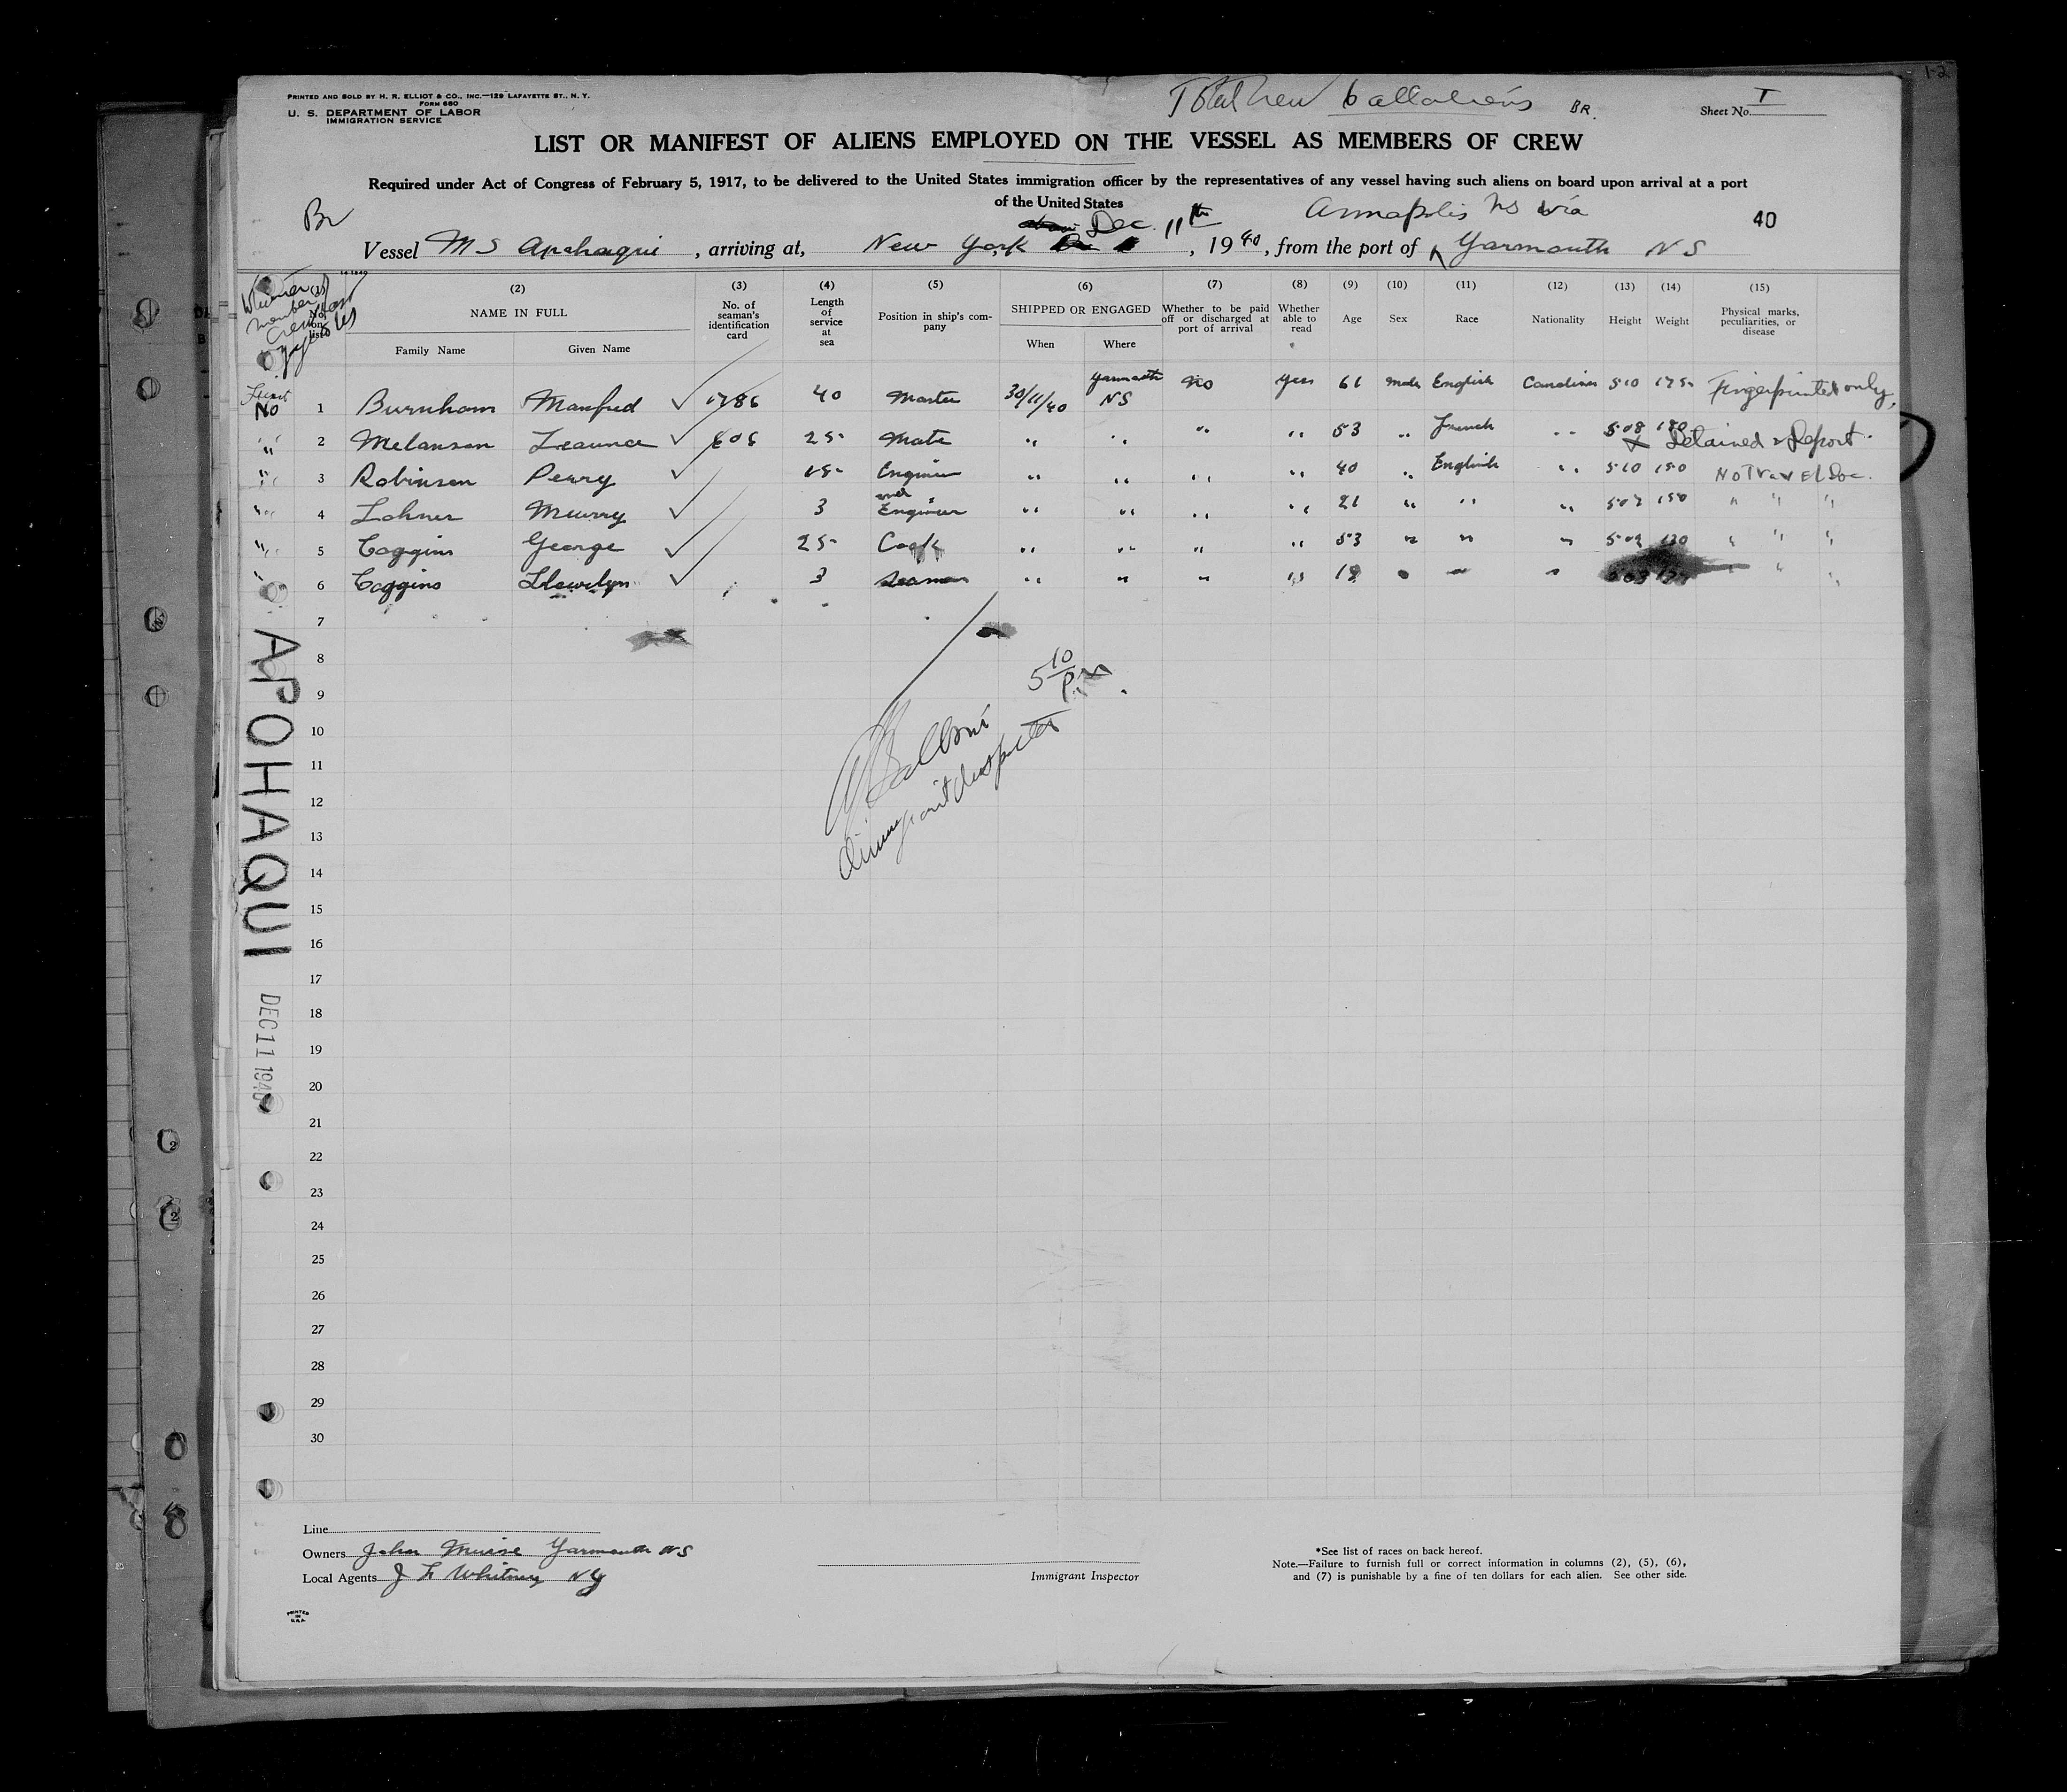 1-2
PRINTED AND SOLD BY H. R. ELLIOT & CO., INC.—129 LAFAYETTE ST., N. Y.
FORM 680
U. S. DEPARTMENT OF LABOR
IMMIGRATION SERVICE
Total Crew 6 all aliens BR.
Sheet No. I
LIST OR MANIFEST OF ALIENS EMPLOYED ON THE VESSEL AS MEMBERS OF CREW
Required under Act of Congress of February 5, 1917, to be delivered to the United States immigration officer by the representatives of any vessel having such aliens on board upon arrival at a port
of the United States
Br
Dec. 11th
Annapolis NS via
40
Vessel MS Apohaqui, arriving at, New York, 1940, from the port of Yarmouth NS
14-1240
Whether member of Crew last
(1) No. on list
(2) NAME IN FULL
Family Name Given Name
(3) No. of seaman's identification card
(4) Length of service at sea
(5) Position in ship's company
(6) SHIPPED OR ENGAGED
When Where
(7) Whether to be paid off or discharged at port of arrival
(8) Whether able to read
(9) Age
(10) Sex
(11) Race
(12) Nationality
(13) Height
(14) Weight
(15) Physical marks, peculiarities, or disease
First
No 1 Burnham Manfred ✓ 1786 40 Master 30/11/40 Yarmouth NS No Yes 61 Male English Canadian 5·10 175 Fingerprinted only,
" 2 Melanson ✓ 606 25 Mate " " " " 53 " French " 5·08 180 Detained & Deport.
" 3 Robinson Perry ✓ 15 Engineer " " " " 40 " English " 510 150 No Travel Doc.
" 4 Lohnes Murry ✓ 3 2nd Engineer " " " " 21 " " " 5·07 150 " " "
" 5 Coggins George ✓ 25 Cook " " " " 53 " " " 5·09 130 " " "
" 6 Coggins Llewelyn ✓ 3 Seaman " " " " 19 " " " " "
7
8
9
10
11
12
13
14
15
16
17
18
19
20
21
22
23
24
25
26
27
28
29
30
5 10 P.M.
APOHAQUI
DEC 11 1940
Line
Owners John Muise Yarmouth NS
Local Agents J L Whitney NY
Immigrant Inspector
*See list of races on back hereof.
Note.—Failure to furnish full or correct information in columns (2), (5), (6),
and (7) is punishable by a fine of ten dollars for each alien. See other side.
PRINTED
IN
U.S.A.